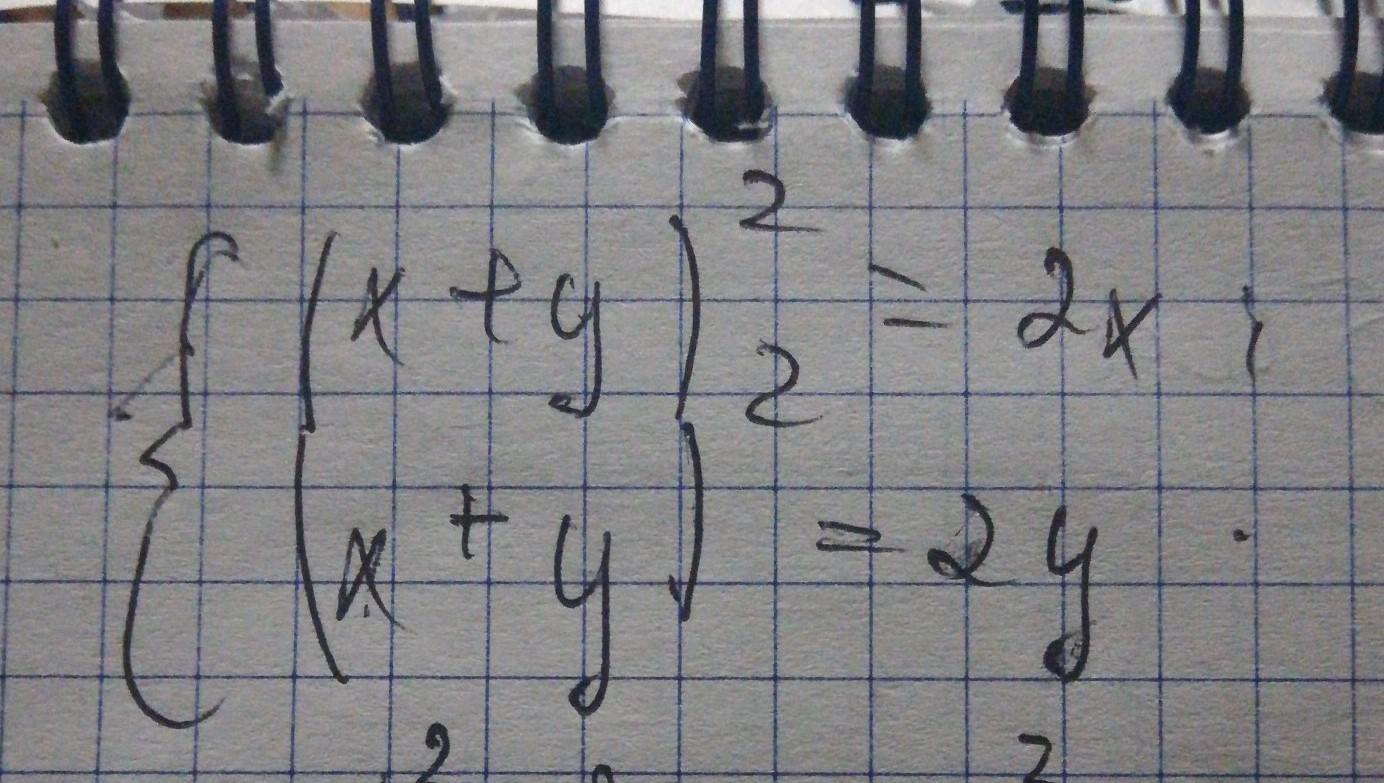 (x + y)² = 2x ;
(x + y)² = 2y .